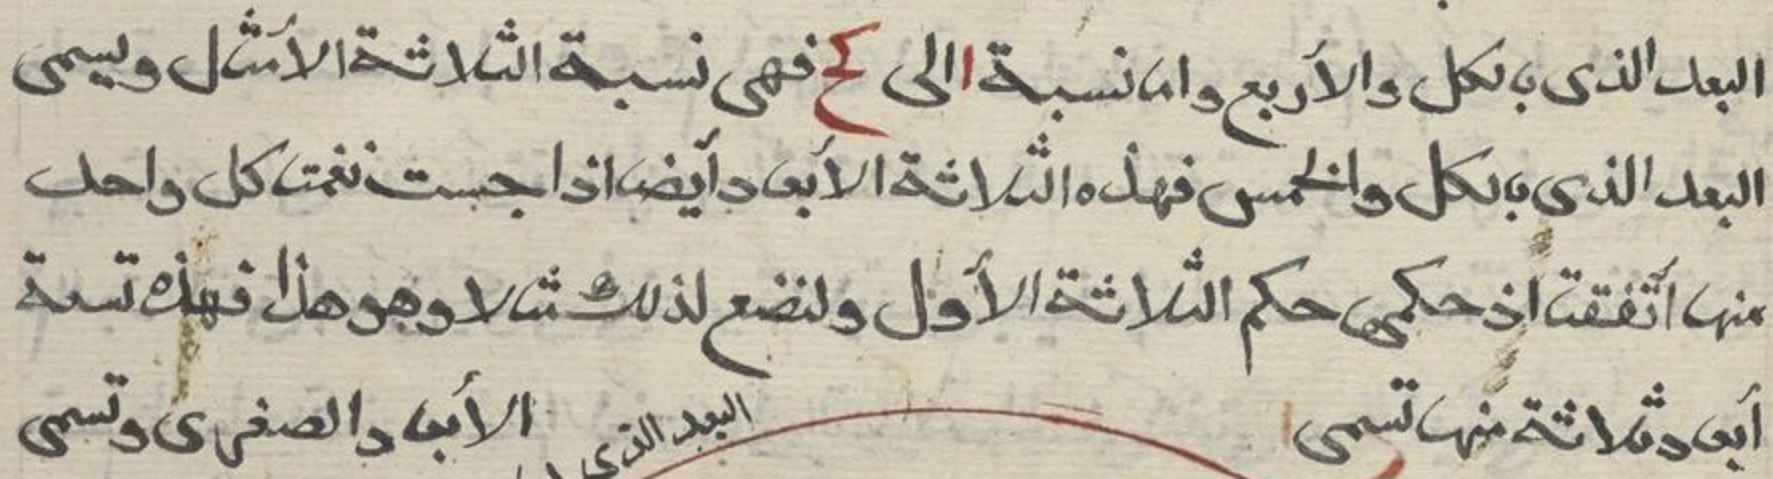 البعد الذى بالكل والأربع واما نسبة ا الى كح فهى نسبة الثلاثة الأمثال ويسمى
البعد الذى بالكل والخمس فهذه الثلاثة الأبعاد أيضا اذا جست نغمتا كل واحد
منها أتفقتا اذ حكمها حكم الثلاثة الأول ولنضع لذلك مثالا وهو هذا فهذه تسعة
أبعاد ثلاثة منها تسمى الأبعاد الصغرى وتسمى
البعد الذى